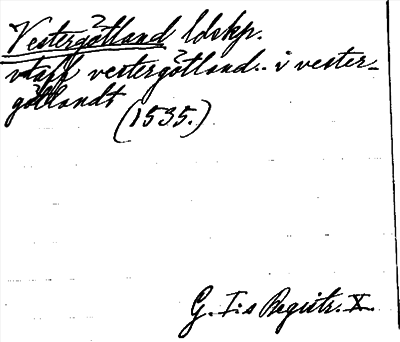 Vestergötland ldskp.
vtaff vestergötland.. i vester-
götlandt
(1535.)
G. I:s Registr. X.